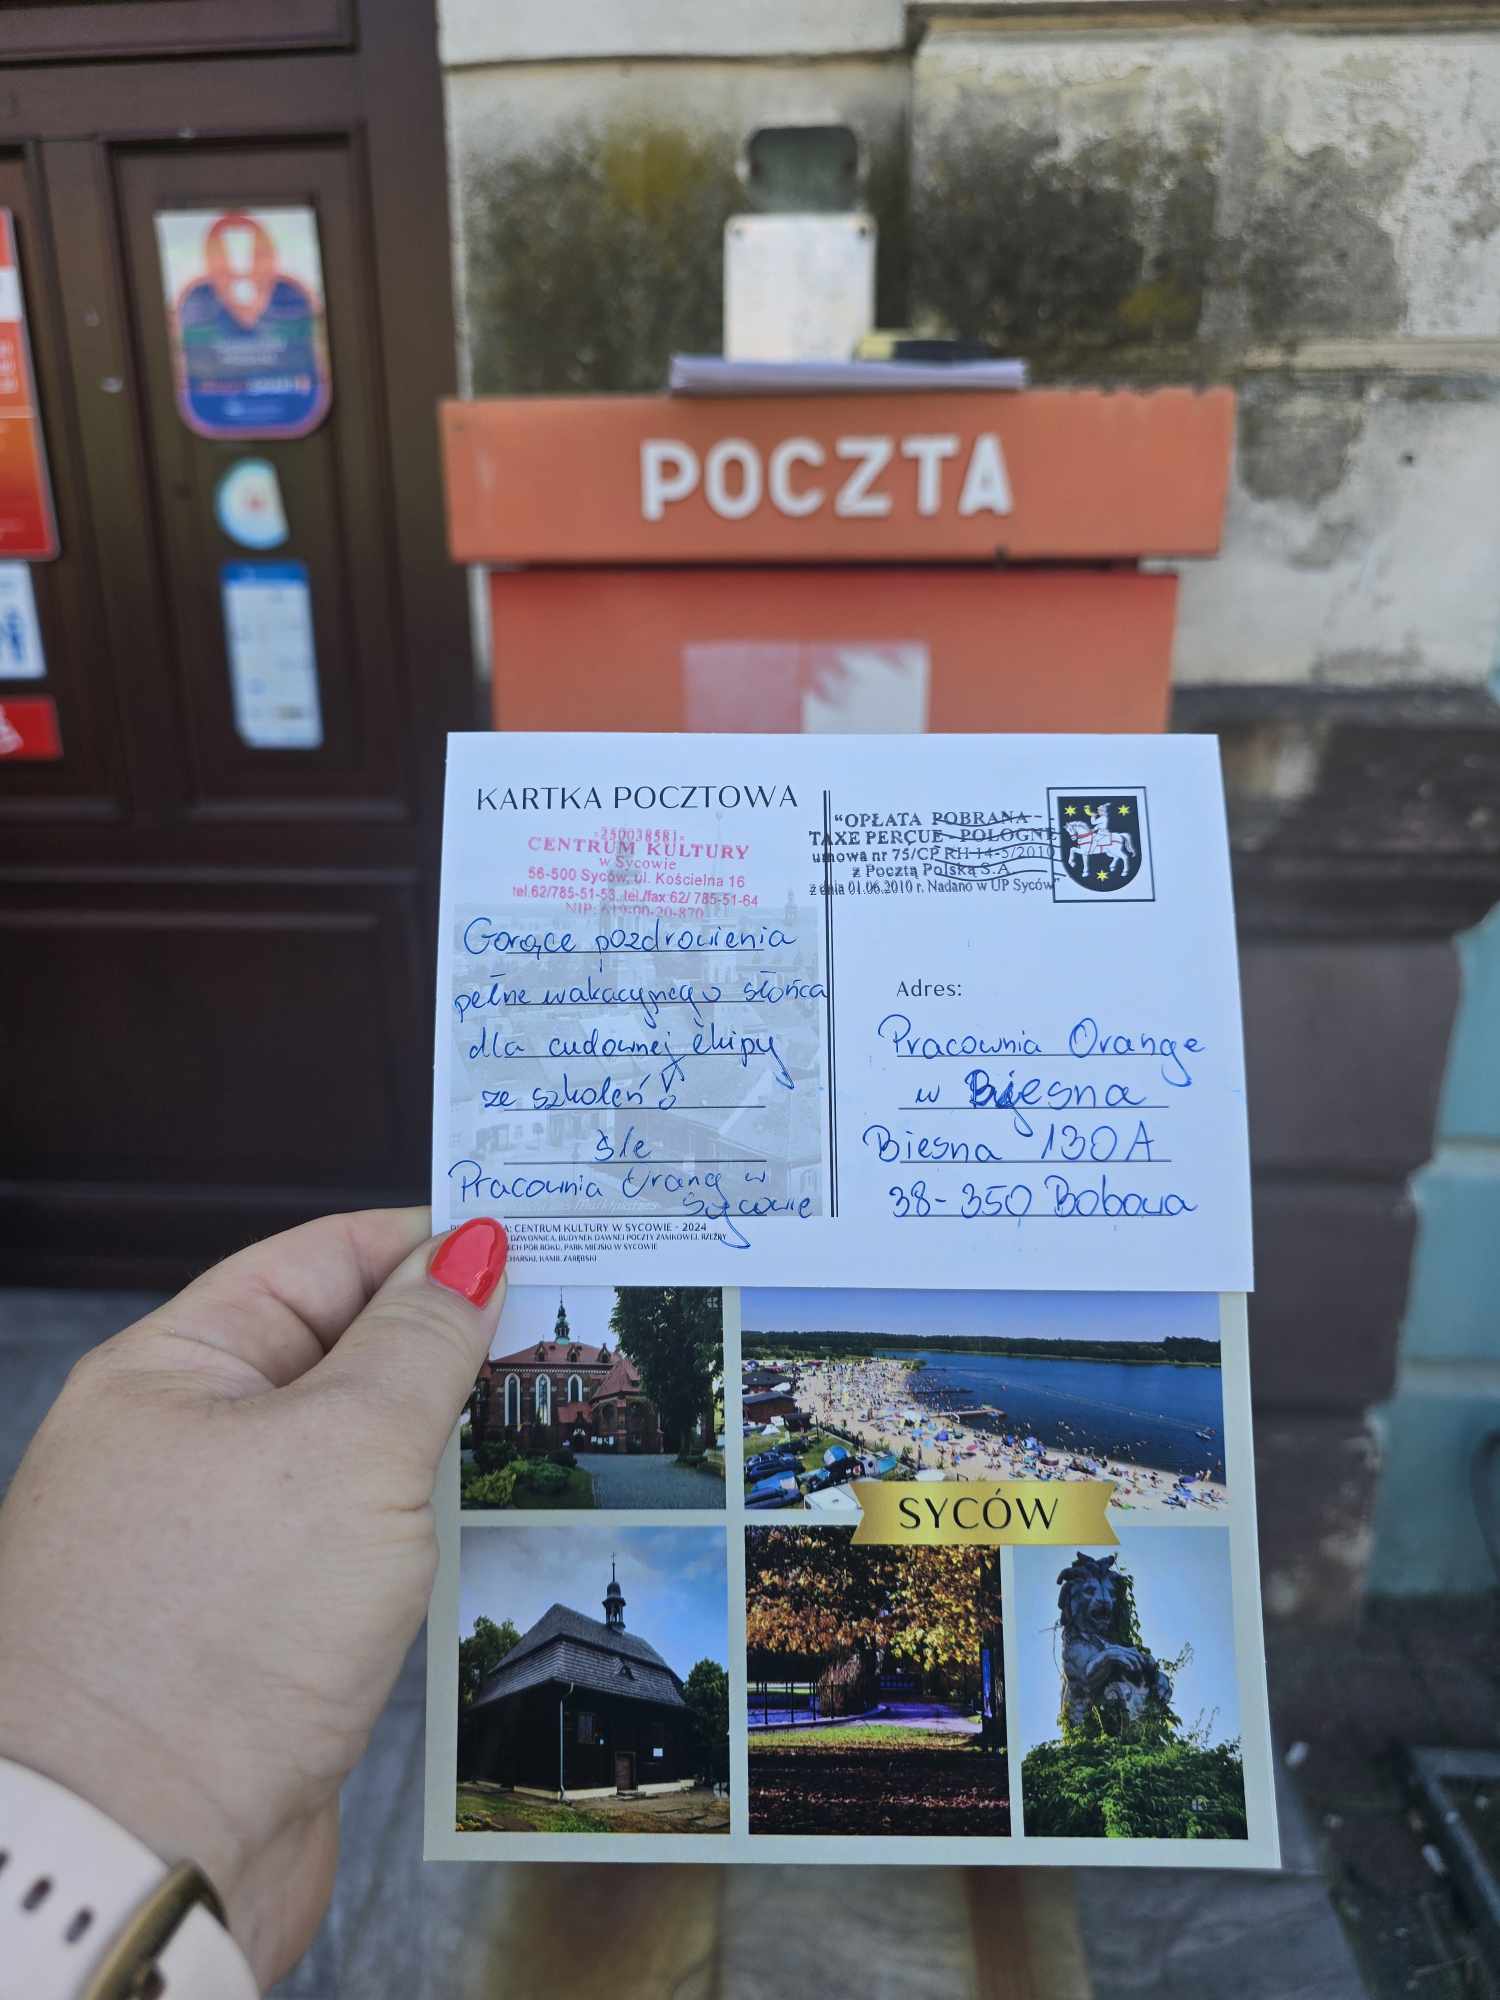 POCZTA
KARTKA POCZTOWA
25003858
CENTRUM KULTURY
w Sycowie
56-500 Syców, ul. Kościelna 16
tel.62/785-51-53, tel./fax:62/ 785-51-64
NIP: 619-00-20-870
Gorące pozdrowienia
pełne wakacyjnego słońca
dla cudownej ekipy
ze szkoleń!
śle
Pracownia Orang w
Sycowie
CENTRUM KULTURY W SYCOWIE - 2024
DZWONNICA, BUDYNEK DAWNEJ POCZTY ZAMKOWEJ, RZEŹBY
ECH PÓR ROKU, PARK MIEJSKI W SYCOWIE
CHARSKI, KAMIL ZARĘBSKI
"OPŁATA POBRANA -
TAXE PERÇUE - POLOGNE
umowa nr 75/CP RH-14-5/2010
z Pocztą Polską S.A.
z dnia 01.06.2010 r. Nadano w UP Syców"
Adres:
Pracownia Orange
w Biesna
Biesna 130A
38-350 Bobowa
SYCÓW